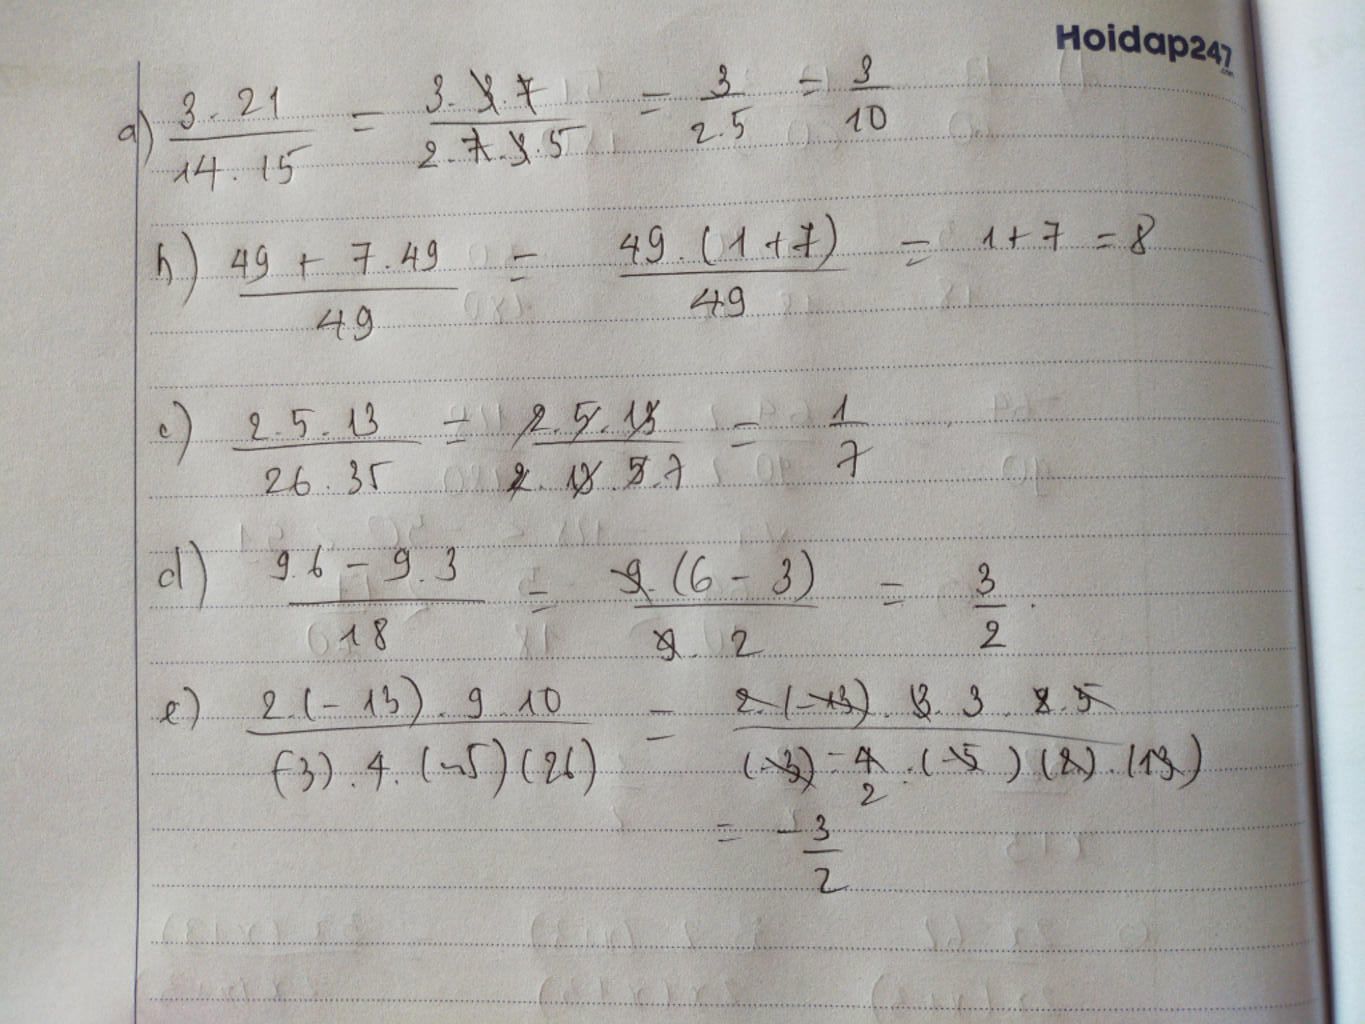 Hoidap247
.com
a) 3 . 21 / 14 . 15 = 3 . 3 . 7 / 2 . 7 . 3 . 5 = 3 / 2 . 5 = 3 / 10
b) 49 + 7 . 49 / 49 = 49 . (1 + 7) / 49 = 1 + 7 = 8
c) 2 . 5 . 13 / 26 . 35 = 2 . 5 . 13 / 2 . 13 . 5 . 7 = 1 / 7
d) 9.6 - 9.3 / 18 = 9 . (6 - 3) / 9 . 2 = 3 / 2 .
e) 2 . (-13) . 9 . 10 / (-3) . 4 . (-5) (26) = 2 . (-13) . 3 . 3 . 2 . 5 / (-3) - 4 . (-5) (2) . (13)
2
= - 3 / 2